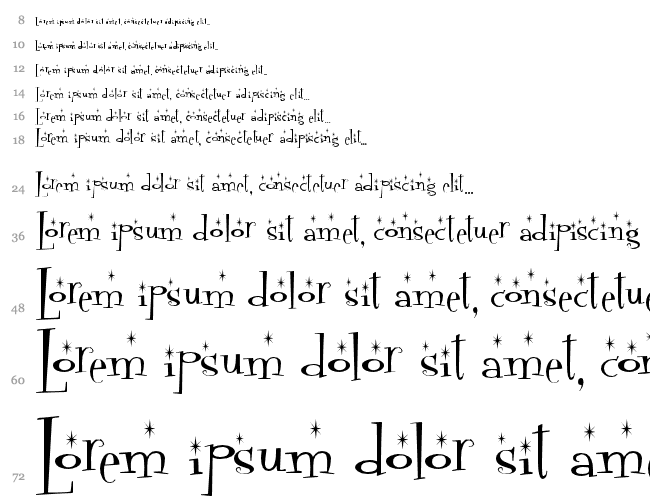 8 Lorem ipsum dolor sit amet, consectetuer adipiscing elit...
10 Lorem ipsum dolor sit amet, consectetuer adipiscing elit...
12 Lorem ipsum dolor sit amet, consectetuer adipiscing elit...
14 Lorem ipsum dolor sit amet, consectetuer adipiscing elit...
16 Lorem ipsum dolor sit amet, consectetuer adipiscing elit...
18 Lorem ipsum dolor sit amet, consectetuer adipiscing elit...
24 Lorem ipsum dolor sit amet, consectetuer adipiscing elit...
36 Lorem ipsum dolor sit amet, consectetuer adipiscing
48 Lorem ipsum dolor sit amet, consectetue
60 Lorem ipsum dolor sit amet, con
72 Lorem ipsum dolor sit am